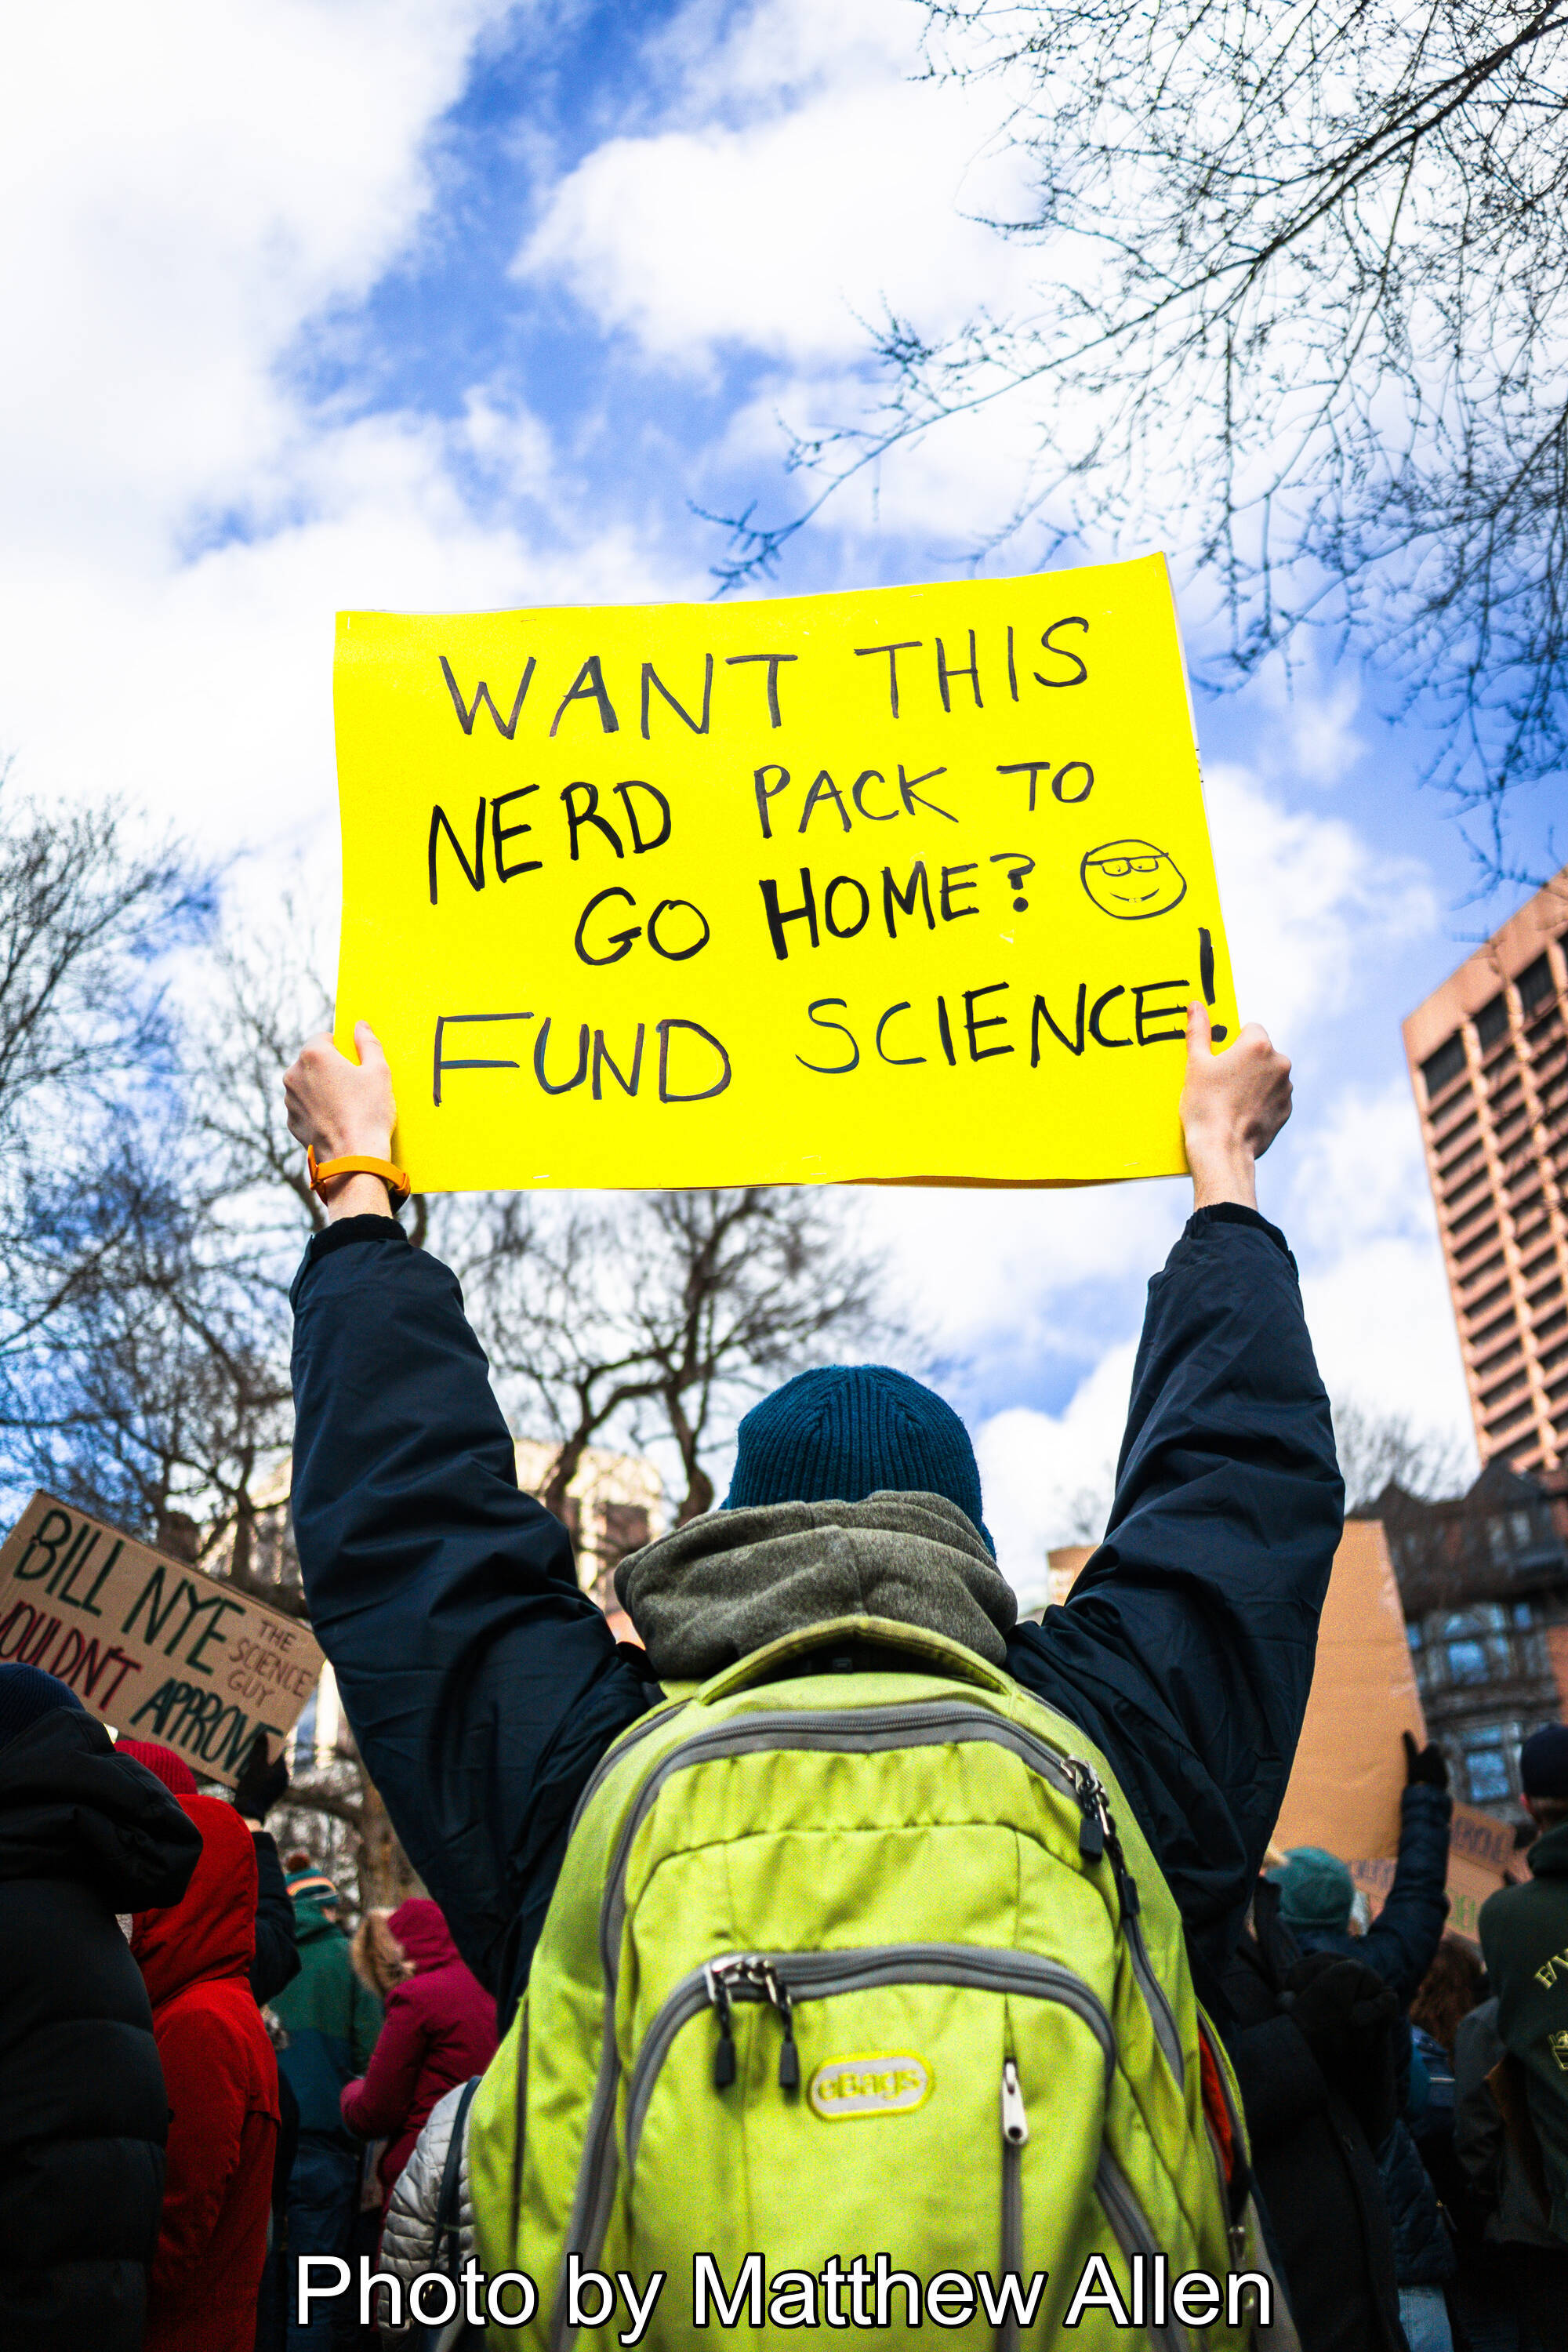 WANT THIS
NERD PACK TO
GO HOME?
FUND SCIENCE!
BILL NYE
THE
SCIENCE
GUY
APPROVE
eBags
Photo by Matthew Allen